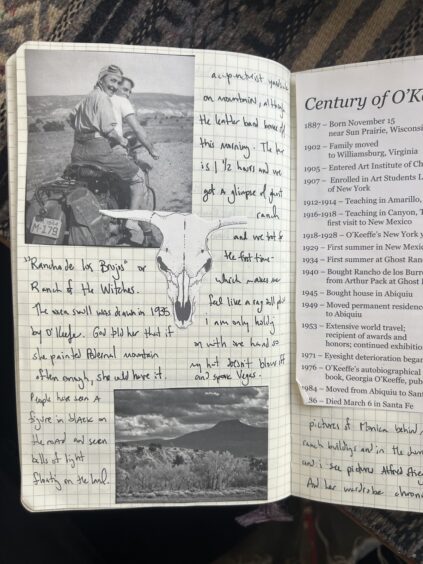 M-179
acupuncturist yesterday
on mountain, although
the leather band
this morning. The
is 1 1/2 hours and we
got a glimpse of
ranch
and we
the first time-
which makes me
feel like a
i am only holding
on with one hand so
my hat doesn't blow off
and speak Vegas.
"Rancho de los Brujos" or
Ranch of the Witches.
The oxen skull was drawn in 1935
by O'Keefe. God told her that if
she painted Pedernal mountain
often enough, she could have it.
People have seen a
figure in black on
the road and seen
balls of light
floating on the land.
Century of O'K
1887 – Born November 15
near Sun Prairie, Wisconsin
1902 – Family moved
to Williamsburg, Virginia
1905 – Entered Art Institute of Ch
1907 – Enrolled in Art Students L
of New York
1912-1914 – Teaching in Amarillo,
1916-1918 – Teaching in Canyon, T
first visit to New Mexico
1918-1928 – O'Keeffe's New York y
1929 – First summer in New Mexi
1934 – First summer at Ghost Ran
1940 – Bought Rancho de los Burro
from Arthur Pack at Ghost R
1945 – Bought house in Abiquiu
1949 – Moved permanent residenc
to Abiquiu
1953 – Extensive world travel;
recipient of awards and
honors; continued exhibition
1971 – Eyesight deterioration began
1976 – O'Keeffe's autobiographical
book, Georgia O'Keeffe, publ
1984 – Moved from Abiquiu to San
86 – Died March 6 in Santa Fe
pictures of Monica behind
ranch buildings and in the
and i see pictures Alfred Stie
And her wardrobe chron